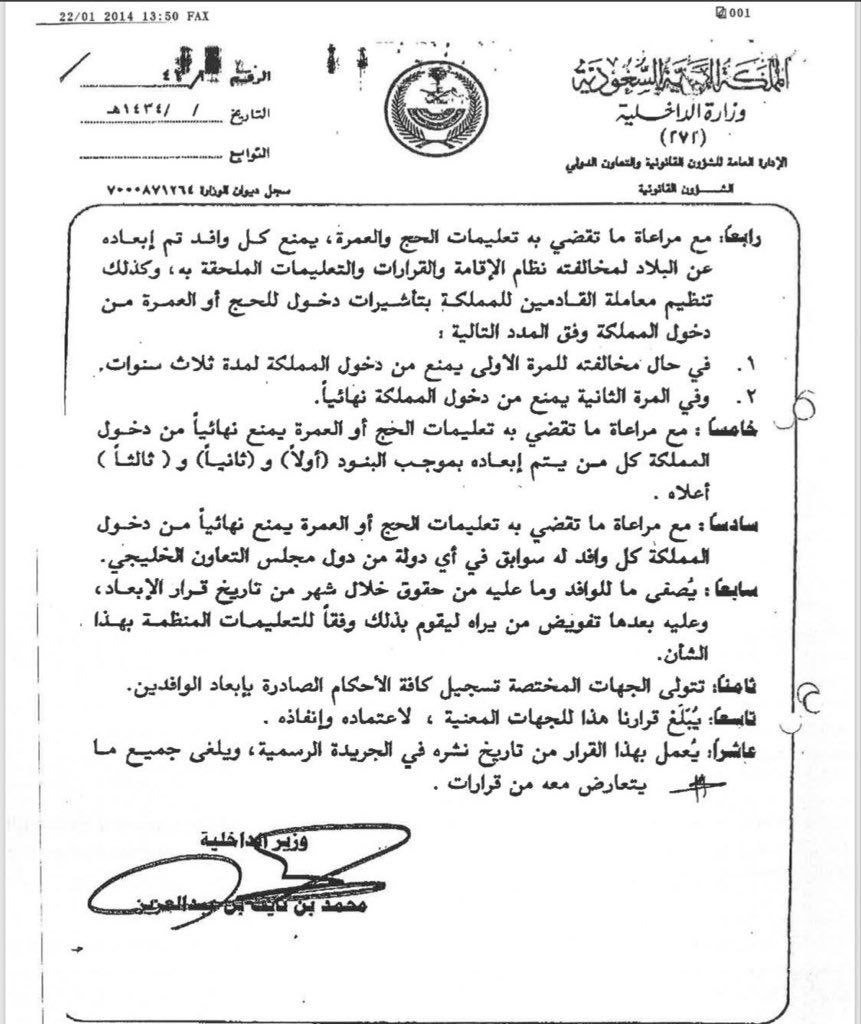 22/01 2014 13:50 FAX
001
المملكة العربية السعودية
وزارة الداخلية
(٢٧٢)
الإدارة العامة للشؤون القانونية والتعاون الدولي
الشـــؤون القانونية
الرقم
التاريخ / / ١٤٣٤هـ
التوابع
سجل ديوان الوزارة ٧٠٠٠٨٧١٢٦٤
رابعاً: مع مراعاة ما تقضي به تعليمات الحج والعمرة، يمنع كل وافد تم إبعاده
عن البلاد لمخالفته نظام الإقامة والقرارات والتعليمات الملحقة به، وكذلك
تنظيم معاملة القادمين للمملكة بتأشيرات دخول للحج أو العمرة من
دخول المملكة وفق المدد التالية :
١. في حال مخالفته للمرة الأولى يمنع من دخول المملكة لمدة ثلاث سنوات.
٢. وفي المرة الثانية يمنع من دخول المملكة نهائياً.
خامساً : مع مراعاة ما تقضي به تعليمات الحج أو العمرة يمنع نهائياً من دخول
المملكة كل من يتم إبعاده بموجب البنود (أولاً) و (ثانياً) و ( ثالثاً )
أعلاه .
سادساً : مع مراعاة ما تقضي به تعليمات الحج أو العمرة يمنع نهائياً من دخول
المملكة كل وافد له سوابق في أي دولة من دول مجلس التعاون الخليجي.
سابعاً : يُصفى ما للوافد وما عليه من حقوق خلال شهر من تاريخ قرار الإبعاد،
وعليه بعدها تفويض من يراه ليقوم بذلك وفقاً للتعليمات المنظمة بهذا
الشأن.
ثامناً: تتولى الجهات المختصة تسجيل كافة الأحكام الصادرة بإبعاد الوافدين.
تاسعاً: يُبَلَّغ قرارنا هذا للجهات المعنية ، لاعتماده وإنفاذه .
عاشراً: يُعمل بهذا القرار من تاريخ نشره في الجريدة الرسمية، ويلغى جميع ما
يتعارض معه من قرارات .
وزير الداخلية
محمد بن نايف بن عبدالعزيز